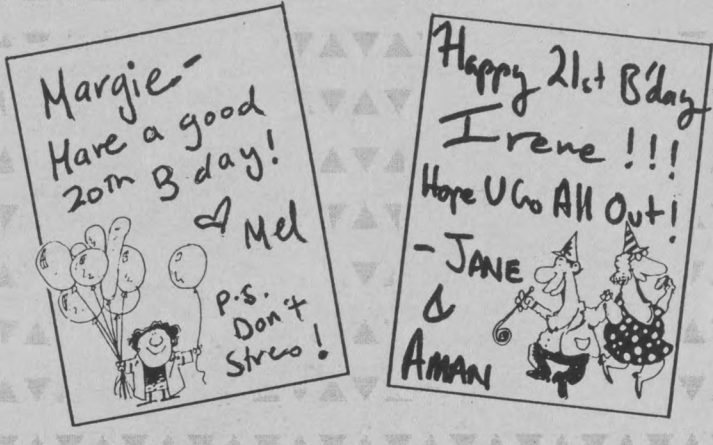 Margie-
Have a good
20th B day!
♡ Mel
P.S.
Don't
Stress!
Happy 21st B'day
Irene!!!
Hope U Go All Out!
- JANE
&
AMAN